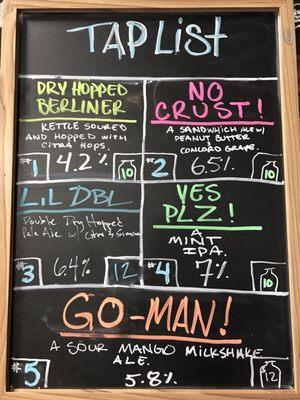 TAP LIST
DRY HOPPED
BERLINER
KETTLE SOURED
AND HOPPED WITH
CITRA HOPS.
#1 4.2% 10
NO
CRUST!
A SANDWHICH ALE W/
PEANUT BUTTER
&
CONCORD GRAPE.
#2 6.5% 10
LIL DBL
Double Dry Hopped
Pale Ale w/ Citra & Simcoe
#3 6.4% 12
YES
PLZ!
A
MINT
IPA.
#4 7% 10
GO-MAN!
A SOUR MANGO MILKSHAKE
ALE.
#5 5.8% 12